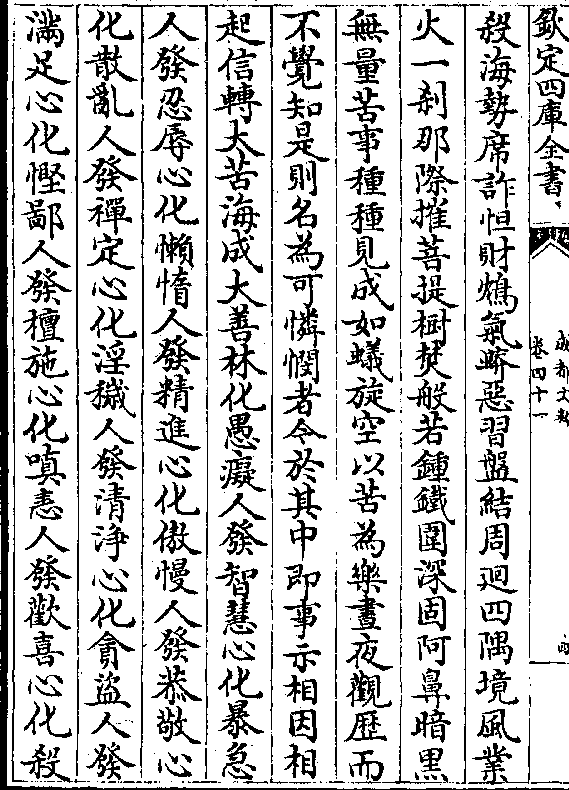 欽定四庫全書
成都文類
卷四十一
殺海勢席詐怛財鴆氣蛜惡習盤結周迴四隅境風業
火一剎那際摧菩提樹焚般若鍾鐵圍深固阿鼻暗黒
無量苦事種種見成如蟻旋空以苦為樂晝夜觀歴而
不覺知是則名為可憐憫者今於其中即事示相因相
起信轉大苦海成大善林化愚癡人發智慧心化暴急
人發忍辱心化懶惰人發精進心化傲慢人發恭敬心
化散亂人發禪定心化淫穢人發清浄心化貪盜人發
滿足心化慳鄙人發檀施心化嗔恚人發歡喜心化殺